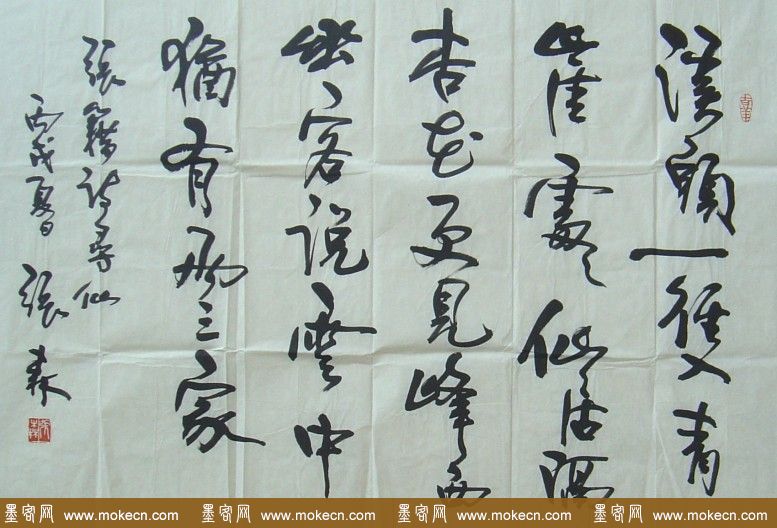 溪頭一徑入青
崖處々仙居隔
杏花更見峰西
幽客說雲中
猶有兩三家
張籍詩尋仙
丙戌夏日 張森
墨客网 www.mokecn.com 墨客网 www.mokecn.com 墨客网 www.mokecn.com 墨客网 www.mokecn.com